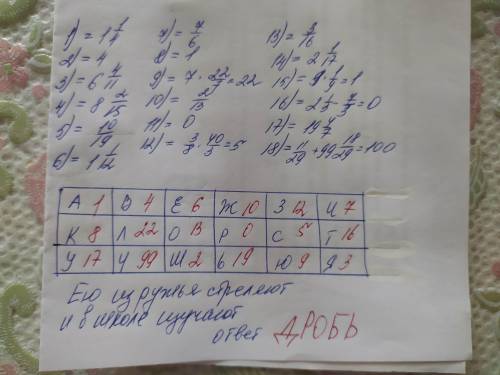 1) = 1 1/4
2) = 4
3) = 6 4/11
4) = 8 2/15
5) = 10/19
6) = 1 1/12
7) = 7/6
8) = 1
9) = 7 · 22/7 = 22
10) = 2/13
11) = 0
12) = 3/8 · 40/3 = 5
13) = 3/16
14) = 2 1/17
15) = 9 · 1/9 = 1
16) = 2 1/3 - 7/3 = 0
17) = 19 4/7
18) = 11/29 + 99 18/29 = 100
А 1 В 4 Е 6 Ж 10 З 12 И 7
К 8 Л 22 О 13 Р 0 С 5 Т 16
У 17 Ч 99 Ш 2 Ь 19 Ю 9 Я 3
Ею из ружья стреляют
и в школе изучают
ответ ДРОБЬ